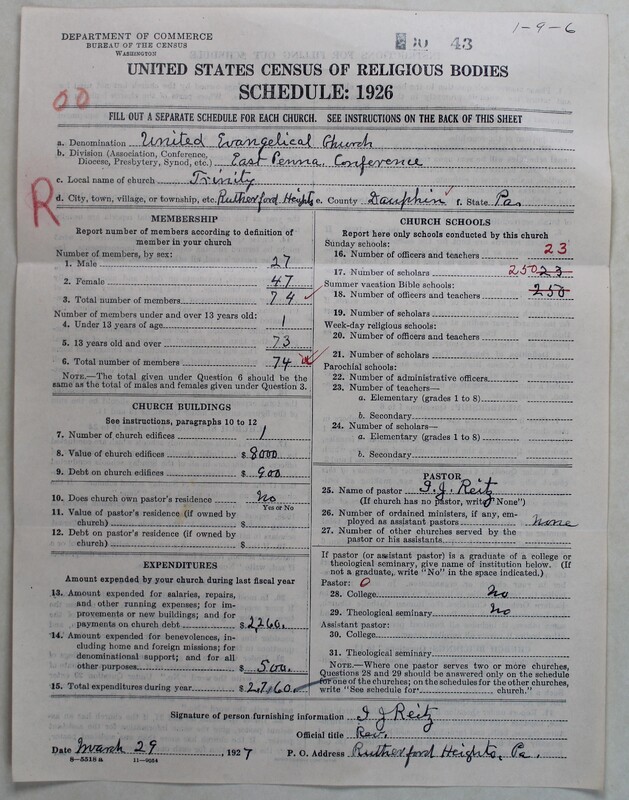 1-9-6
DEPARTMENT OF COMMERCE
BUREAU OF THE CENSUS
WASHINGTON
43
UNITED STATES CENSUS OF RELIGIOUS BODIES
SCHEDULE: 1926
00
FILL OUT A SEPARATE SCHEDULE FOR EACH CHURCH. SEE INSTRUCTIONS ON THE BACK OF THIS SHEET
a. Denomination United Evangelical Church
b. Division (Association, Conference, Diocese, Presbytery, Synod, etc.) East Penna. Conference
c. Local name of church Trinity
R
d. City, town, village, or township, etc. Rutherford Heights e. County Dauphin f. State Pa.
MEMBERSHIP
Report number of members according to definition of
member in your church
Number of members, by sex:
1. Male 27
2. Female 47
3. Total number of members 74
Number of members under and over 13 years old:
4. Under 13 years of age 1
5. 13 years old and over 73
6. Total number of members 74
NOTE.—The total given under Question 6 should be
same as the total of males and females given under Question 3.
CHURCH BUILDINGS
See instructions, paragraphs 10 to 12
7. Number of church edifices 1
8. Value of church edifices $ 8000
9. Debt on church edifices $ 900
10. Does church own pastor's residence No
Yes or No
11. Value of pastor's residence (if owned by
church) $
12. Debt on pastor's residence (if owned by
church) $
EXPENDITURES
Amount expended by your church during last fiscal year
13. Amount expended for salaries, repairs,
and other running expenses; for im-
provements or new buildings; and for
payments on church debt $ 2,260.
14. Amount expended for benevolences, in-
cluding home and foreign missions; for
denominational support; and for all
other purposes $ 500.
15. Total expenditures during year $ 2760.
CHURCH SCHOOLS
Report here only schools conducted by this church
Sunday schools:
16. Number of officers and teachers 23
17. Number of scholars 250 23
Summer vacation Bible schools:
18. Number of officers and teachers 250
19. Number of scholars
Week-day religious schools:
20. Number of officers and teachers
21. Number of scholars
Parochial schools:
22. Number of administrative officers
23. Number of teachers—
a. Elementary (grades 1 to 8)
b. Secondary
24. Number of scholars—
a. Elementary (grades 1 to 8)
b. Secondary
PASTOR
25. Name of pastor I. J. Reitz
(If church has no pastor, write "None")
26. Number of ordained ministers, if any, em-
ployed as assistant pastors none
27. Number of other churches served by the
pastor or his assistants
If pastor (or assistant pastor) is a graduate of a college or
theological seminary, give name of institution below. (If
not a graduate, write "No" in the space indicated.)
Pastor: 0
28. College No
29. Theological seminary No
Assistant pastor:
30. College
31. Theological seminary
NOTE.—Where one pastor serves two or more churches,
Questions 28 and 29 should be answered only on the schedule
for one of the churches; on the schedules for the other churches,
write "See schedule for church."
Signature of person furnishing information I J Reitz
Official title Rev.
Date March 29, 1927 P. O. Address Rutherford Heights, Pa.
8—5518 a 11—9054